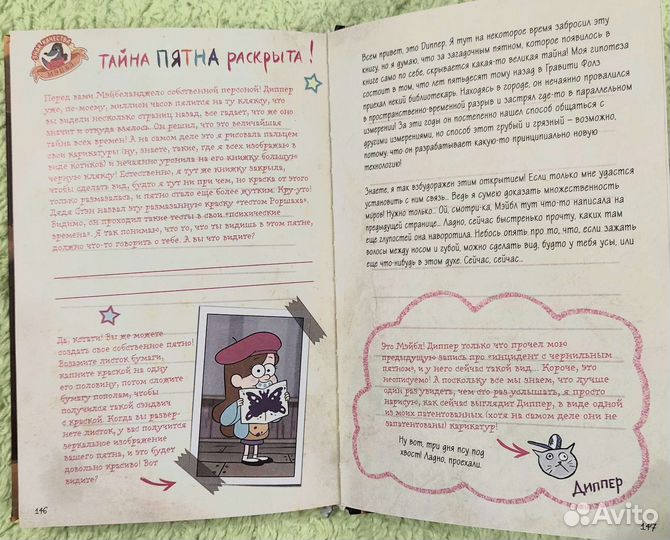 ЗНАК КАЧЕСТВА
МЭЙБЛ
ТАЙНА ПЯТНА РАСКРЫТА!
Перед вами Мэйбеланджело собственной персоной! Диппер
уже, по-моему, миллион часов пялится на ту кляксу, что
вы видели несколько страниц назад, все гадает, что же оно
значит и откуда взялось. Он решил, что это величайшая
тайна всех времен! А на самом деле это я рисовала пальцем
свои карикатуры (ну, знаете, такие, где я всех изображаю в
виде котиков) и нечаянно уронила на его книжку большую
черную кляксу! Естественно, я тут же книжку закрыла,
чтобы сделать вид, будто я тут ни при чем, но краска от этого
только размазалась, и пятно стало еще более жутким. Кру-уто!
Дядя Стэн назвал эту размазанную краску «тестом Роршаха».
Видимо, он проходил такие тесты в свои «психические
времена». Я так понимаю, что то, что ты видишь в этом пятне,
должно что-то говорить о тебе. А вы что видите?
Да, кстати! Вы же можете
создать свое собственное пятно!
Возьмите листок бумаги,
капните краской на одну
его половину, потом сложите
бумагу пополам, чтобы
получился такой сэндвич
с краской. Когда вы развер-
нете листок, у вас получится
зеркальное изображение
вашего пятна, и это будет
довольно красиво! Вот
видите?
146
Всем привет, это Диппер. Я тут на некоторое время забросил эту
книгу, но я думаю, что за загадочным пятном, которое появилось в
книге само по себе, скрывается какая-то великая тайна! Моя гипотеза
состоит в том, что лет пятьдесят тому назад в Гравити Фолз
приехал некий библиотекарь. Находясь в городе, он нечаянно провалился
в пространственно-временной разрыв и застрял где-то в параллельном
измерении! За эти годы он постепенно нашел способ общаться с
другими измерениями, но способ этот грубый и грязный – возможно,
потому, что он разрабатывает какую-то принципиально новую
технологию!
Знаете, я так взбудоражен этим открытием! Если только мне удастся
установить с ним связь... Ведь я сумею доказать множественность
миров! Нужно только... Ой, смотри-ка, Мэйбл тут что-то написала на
предыдущей странице... Ладно, сейчас быстренько прочту, каких там
еще глупостей она наворотила. Небось опять про то, что, если зажать
волосы между носом и губой, можно сделать вид, будто у тебя усы, или
еще что-нибудь в этом духе. Сейчас, сейчас...
Это Мэйбл! Диппер только что прочел мою
предыдущую запись про «инцидент с чернильным
пятном», и у него сейчас такой вид... Короче, это
неописуемо! А поскольку все мы знаем, что лучше
один раз увидеть, чем сто раз услышать, я просто
нарисую, как сейчас выглядит Диппер, в виде одной
из моих патентованных (хотя на самом деле они не
запатентованы) карикатур!
Ну вот, три дня псу под
хвост! Ладно, проехали.
Диппер
147
Avito